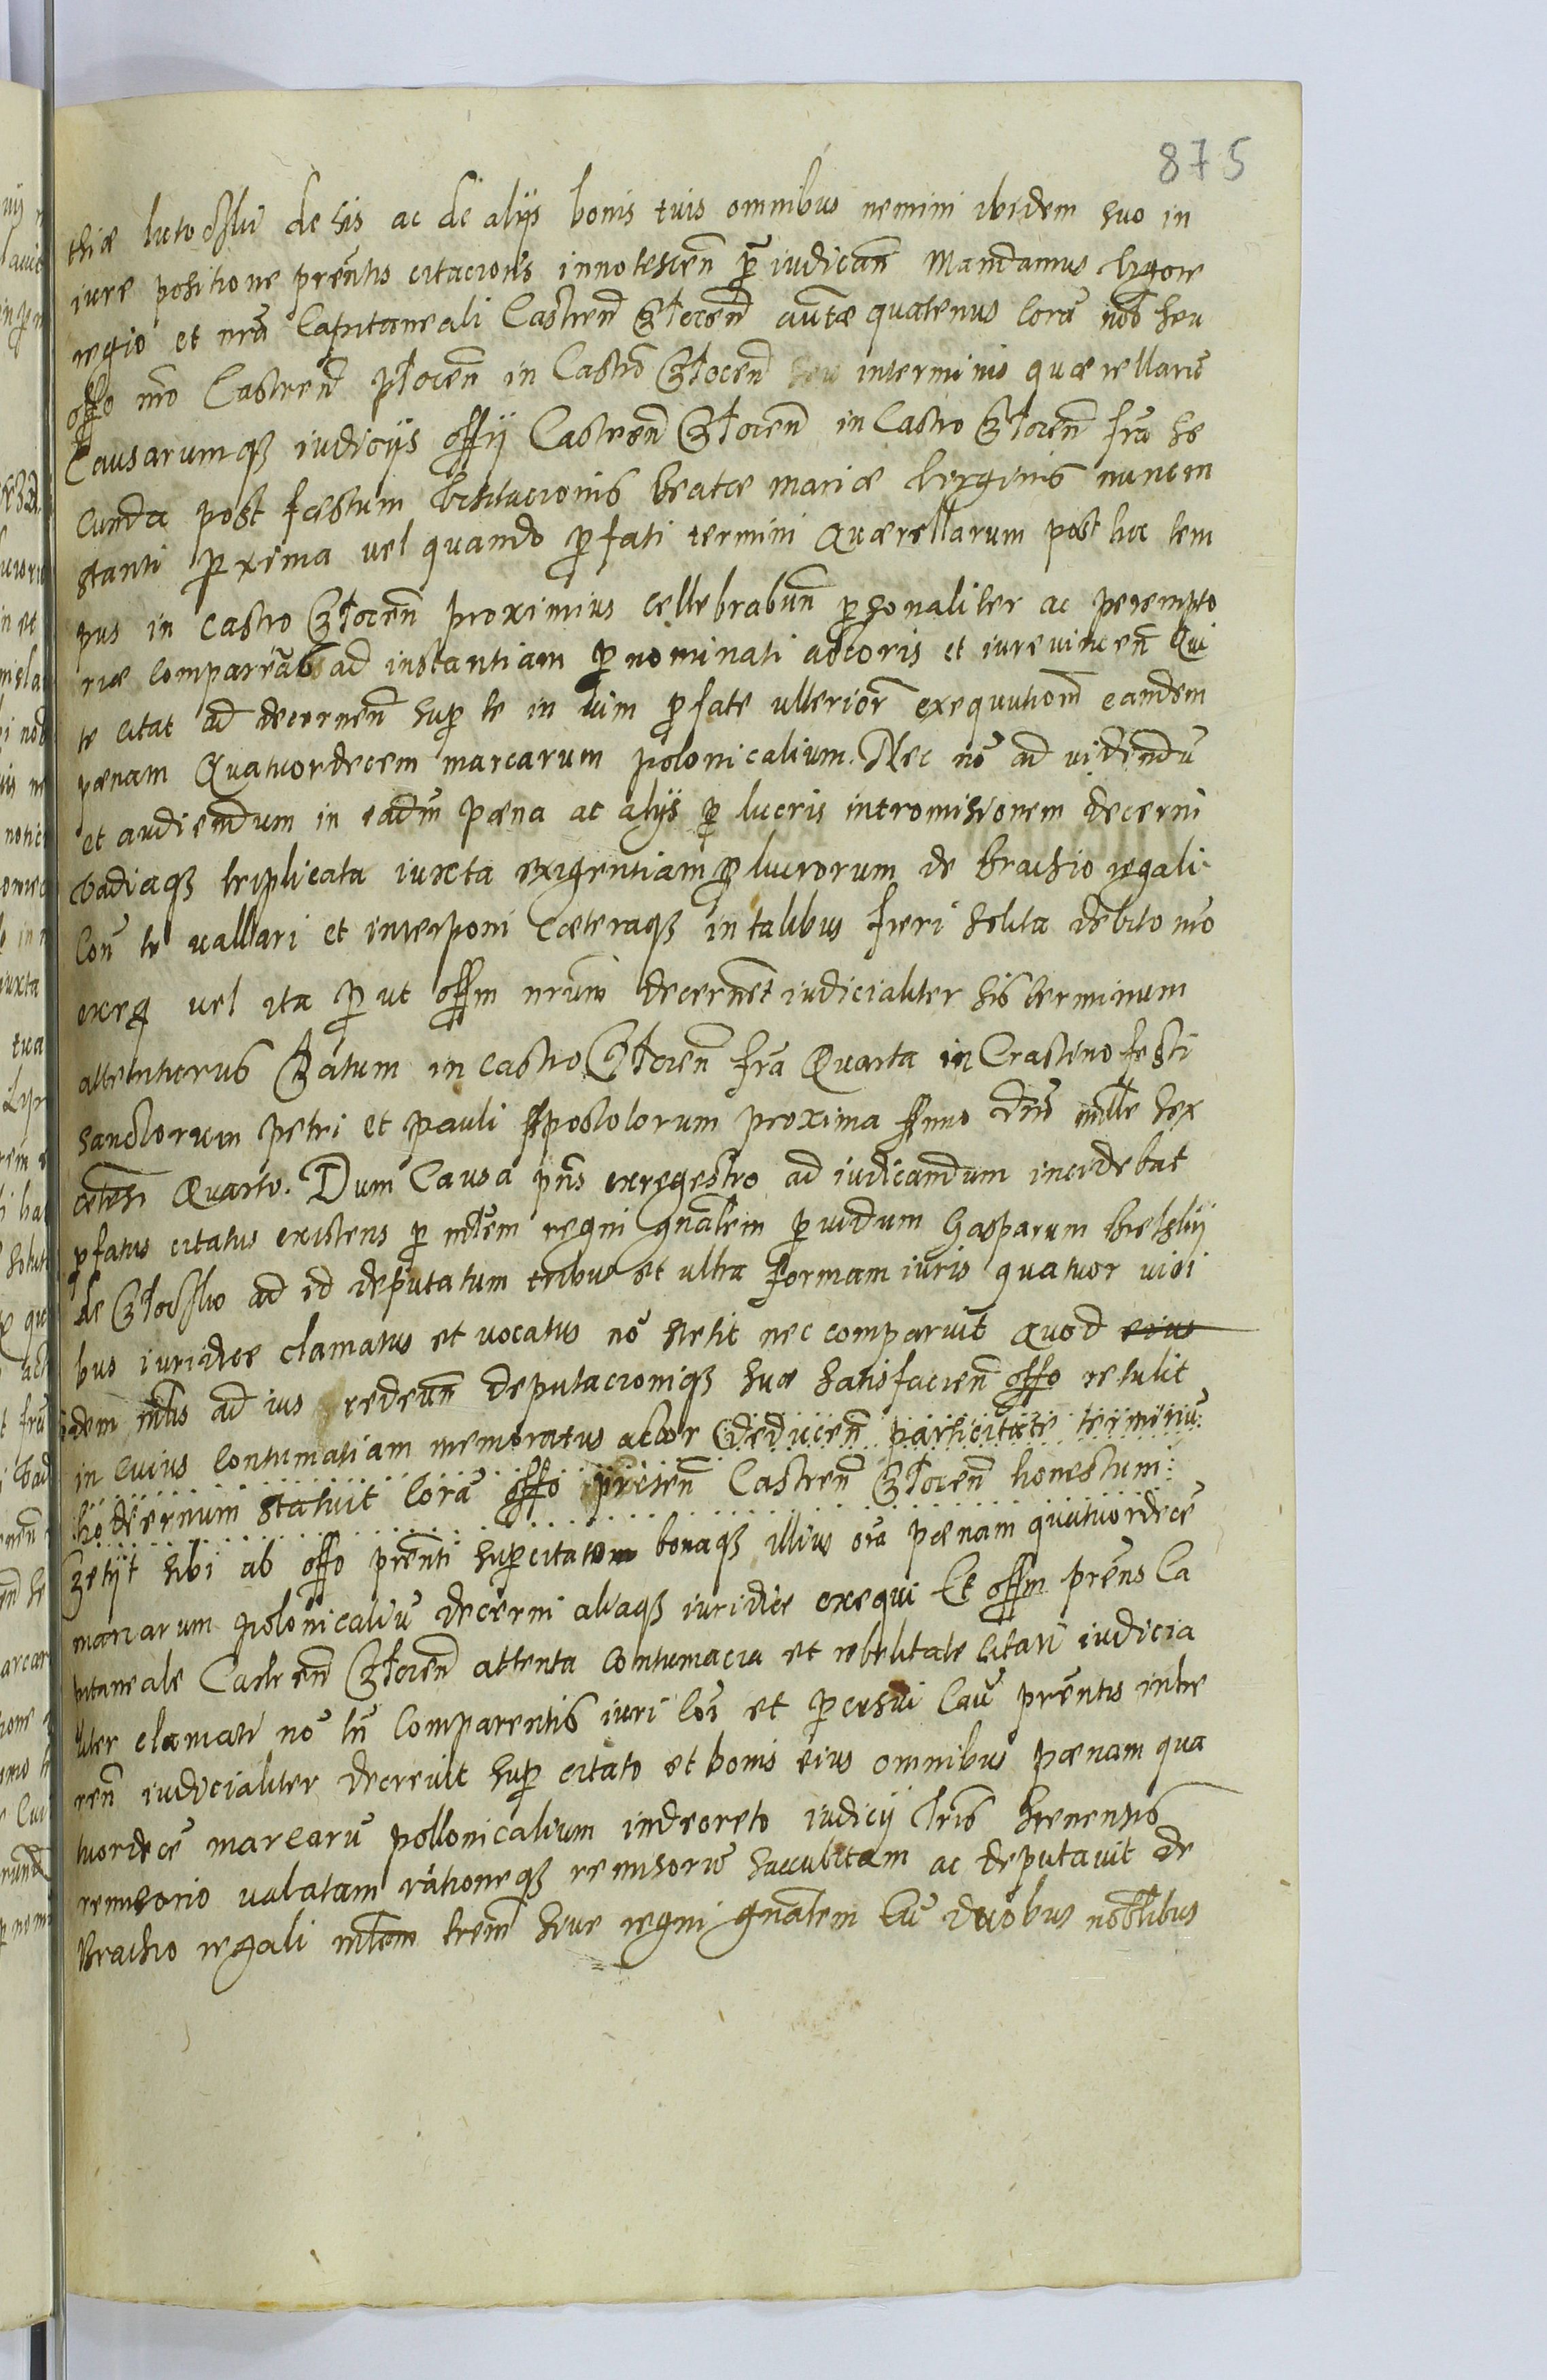 875
thiæ lutoslii de his ac de alijs bonis tuis omnibus nemini ibidem suo in
iure positione prēntis citacionis innotescen̄ p iudican̄ Mandamus Vigore
regio et nrā Capitaneali Castren̄ Plocen̄ autæ quatenus corā nob seu
offo nrō Castren̄ plocen̄ in Castro Plocen̄ seu interminis quærellarū
Causarumq iudicijs offij Castren̄ Plocen̄ in Castro Plocen̄ frā se
cunda post festum Visitacionis beatæ mariæ Virginis nunc in
stanti proxima vel quando pfati termini Quærellarum post hoc tem
pus in castro Plocen̄ proximius cellebrabun̄ psonaliter ac perempto
riæ compareas ad instantiam pnominati actoris et iurevincen̄ Qui
te citat ad decernen̄ sup te in vim pfate ulterior̄ exequutionē eandem
pænam Quatuordecem marcarum polonicalium. Nec nō ad videndū
et audiendum in eadem pæna ac alijs p lucris intromissionem decerni
Vadiaq triplicata iuxta exigentiam p lucrorum de brachio regali
Con̄ te vallari et interponi Cæteraq in talibus fieri solita debito mō
exeq vel ita p ut offm nrum decernet iudicialiter his terminum
attentaturus Datum in castro Plocen̄ frā Quarta in Crastino festi
sanctorum Petri et Pauli Apostolorum proxima Anno Dni mille sex
centesi Quarto. Dum Causa pns exregestro ad iudicandum incidebat
pfatus citatus existens p mlem regni gnalem pvidum Gasparum bielskij
de Plocsko ad id deputatum tribus et ultra formam iuris quatuor vici
bus iuridice clamatus et vocatus nō stetit nec comparuit Quod eius
idem mlis ad ius redeun̄ deputacioniq suæ satisfacien̄ offo retulit
in cuius contumatiam memoratus actor Deducen̄ partis citatæ terminū
hodiernum statuit Corā offo præsen̄ Castren̄ Plocen̄ honestum
Petijt sibi ab offo prēnti sup citatom bonaq illius oīa pænam quatuordecē
marcarum polonicaliū decerni aliaq iuridice exequi Et offm prēns Ca
pitaneale Castren̄ Plocen̄ attenta contumacia et rebelitate citati iudicia
liter clamati nō tn̄ Comparentis iuri Coī et pcessui cau prēntis inhe
ren̄ iudicialiter decrevit sup citato et bonis eius omnibus pænam qua
tuordecē marcarū pollonicalium in decreto iudicij
remissorio valatam rationeq remissoriū succubitam ac deputavit de
Brachio regali mlem regni gnalem Cū duobus noblibus